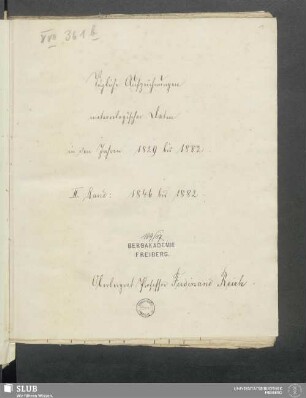 XVII 361 b
Tägliche Aufzeichnungen
meteorologischer Daten
in den Jahren 1829 bis 1882
II. Band: 1846 bis 1882
BERGAKADEMIE
FREIBERG.
Oberbergrat Professor Ferdinand Reich.
SLUB
Wir führen Wissen.
UNIVERSITÄTSBIBLIOTHEK
FREIBERG